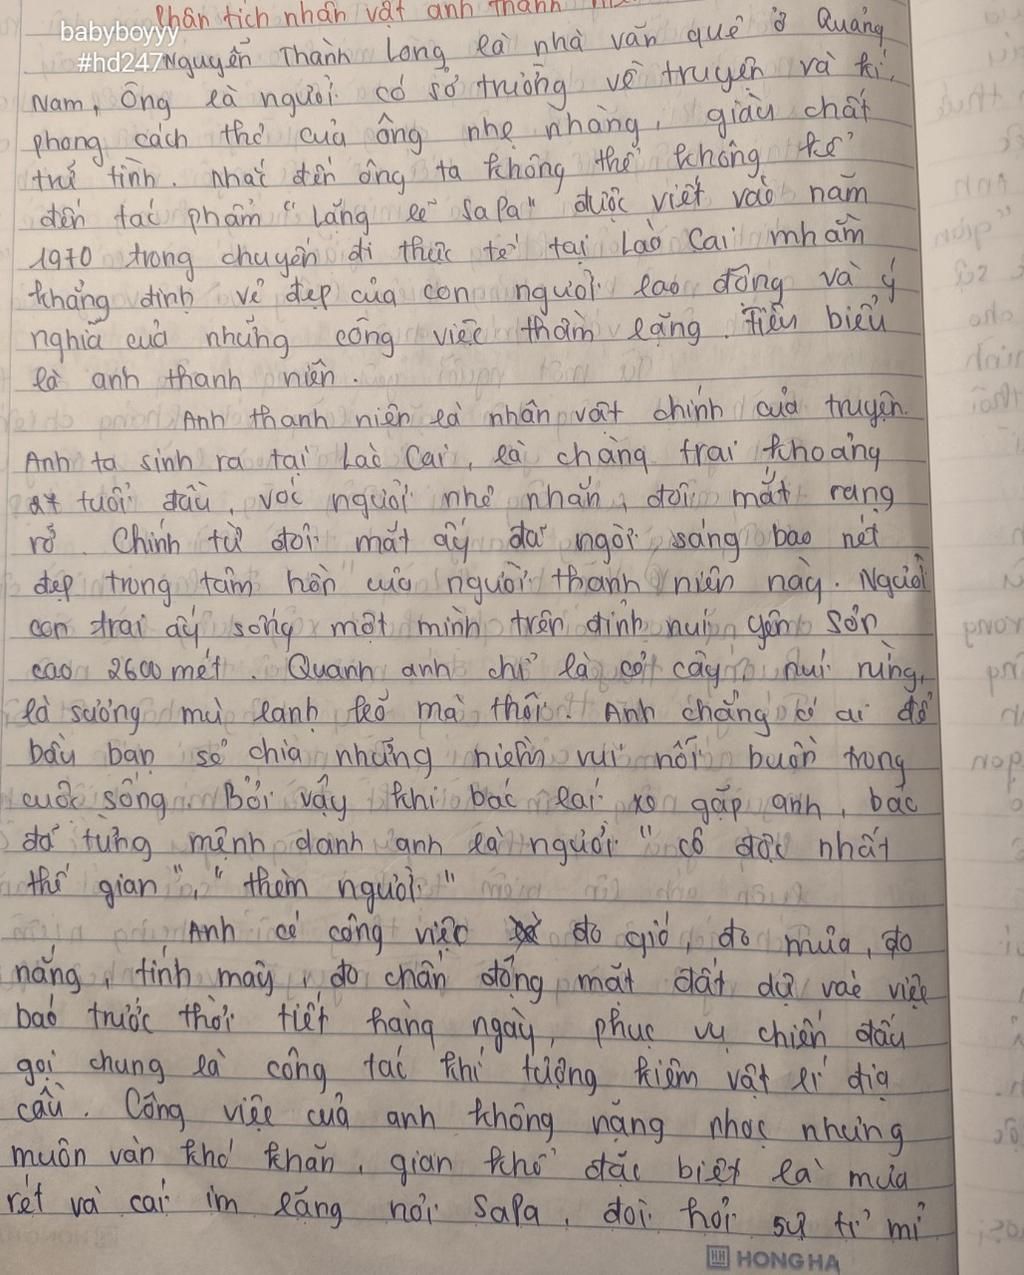 Phân tích nhân vật anh thanh
babyboyyy
#hd247
Nguyễn Thành Long là nhà văn quê ở Quảng
Nam, Ông là người có sở trường về truyện và kí,
phong cách thơ của ông nhẹ nhàng, giàu chất
trữ tình. Nhắc đến ông ta không thể không kể
đến tác phẩm "Lặng lẽ SaPa" được viết vào năm
1970 trong chuyến đi thực tế tại Lào Cai nhằm
khẳng định vẻ đẹp của con người lao động và ý
nghĩa của những công việc thầm lặng. Tiêu biểu
là anh thanh niên.
Anh thanh niên là nhân vật chính của truyện.
Anh ta sinh ra tại Lào Cai, là chàng trai khoảng
27 tuổi đầu, vóc người nhỏ nhắn, đôi mắt rạng
rỡ. Chính từ đôi mắt ấy đã ngời sáng bao nét
đẹp trong tâm hồn của người thanh niên này. Người
con trai ấy sống một mình trên đỉnh núi yên Sơn
cao 2600 mét. Quanh anh chỉ là cỏ cây, núi rừng,
là sương mù lạnh lẽo mà thôi. Anh chẳng có ai để
bầu bạn sẻ chia những niềm vui nỗi buồn trong
cuộc sống. Bởi vậy khi bác lái xe gặp anh, bác
đã từng mệnh danh anh là người "cô độc nhất
thế gian", "thèm người"
Anh có công việc đo gió, đo mưa, đo
nắng, tính mây, đo chấn động mặt đất dự vào việc
báo trước thời tiết hàng ngày, phục vụ chiến đấu
gọi chung là công tác khí tượng kiêm vật lí địa
cầu. Công việc của anh không nặng nhọc nhưng
muôn vàn khó khăn, gian khổ đặc biệt là mưa
rét và cái im lặng nơi SaPa, đòi hỏi sự tỉ mỉ
HH HONG HA